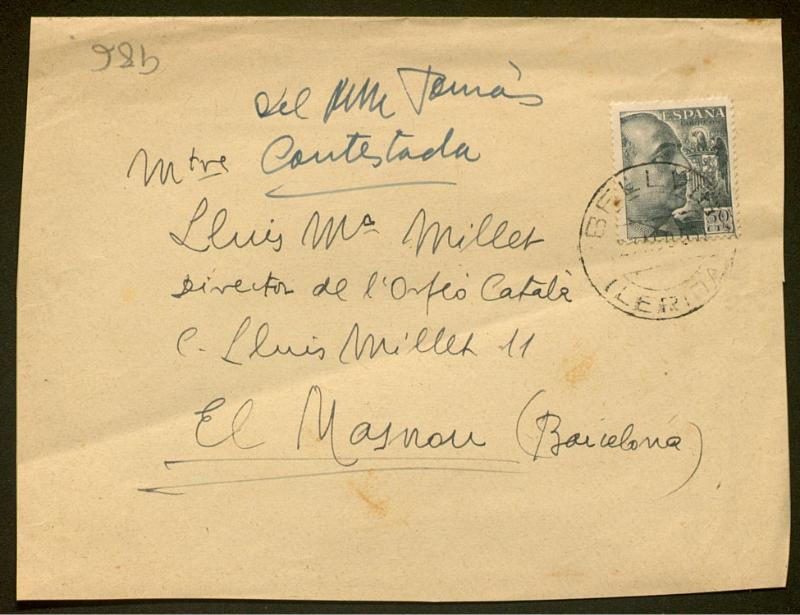 986
del Pare Tomàs
Contestada
Mtre
Lluis Mª Millet
Director de l'Orfeó Català
C. Lluis Millet 11
El Masnou (Barcelona)
ESPAÑA
CORREOS
50
CTS
(LERIDA)